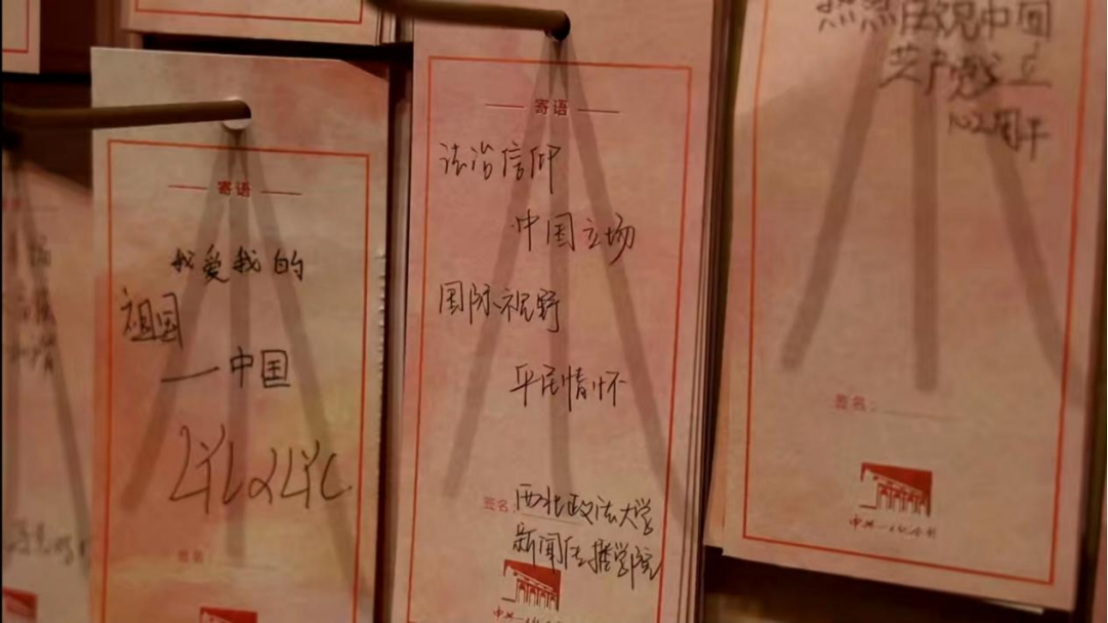 寄语
我爱我的
祖国
——中国
寄语
法治信仰
中国立场
国际视野
平民情怀
签名：西北政法大学
新闻传播学院
热烈庆祝中国
共产党成立
102周年
签名：
中共一大纪念馆